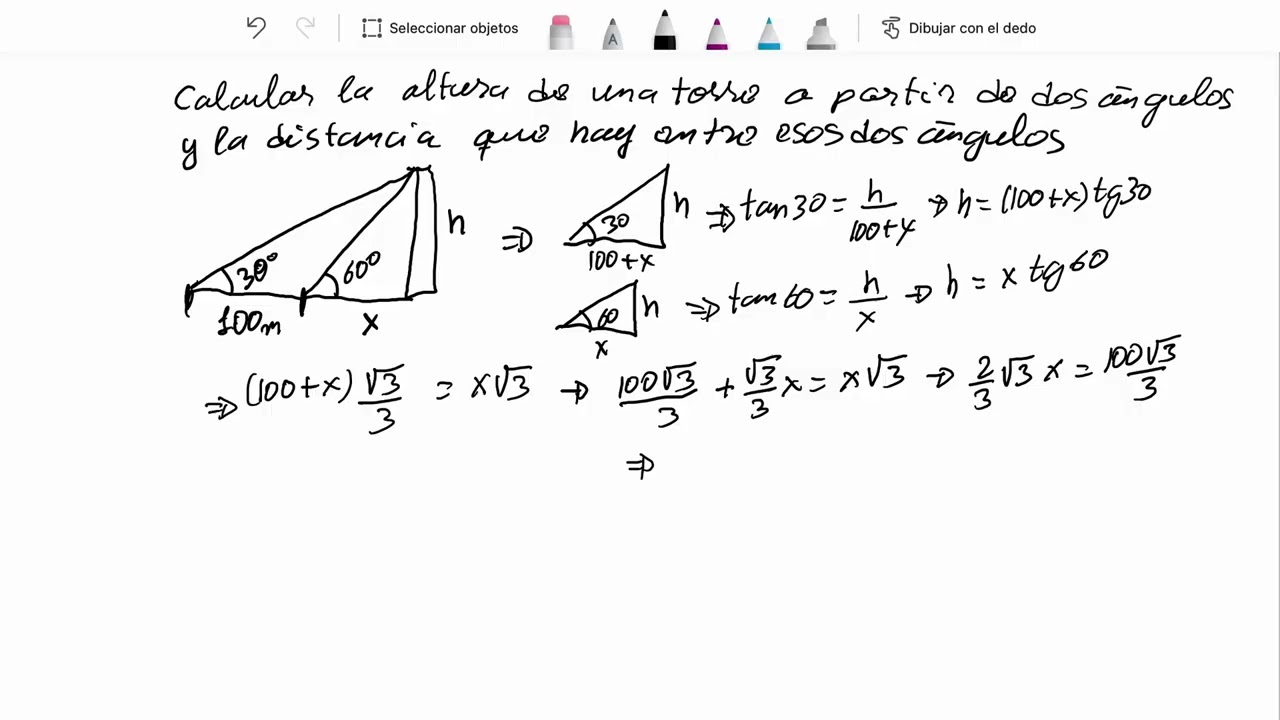 Seleccionar objetos
A
Dibujar con el dedo
Calcular la altura de una torre a partir de dos ángulos
y la distancia que hay entre esos dos ángulos
30° 60° h
100m x
⇒ 30 h 100+x ⇒ tan30 = h/(100+x) → h = (100+x) tg30
60 h x ⇒ tan60 = h/x → h = x tg60
⇒ (100+x) √3/3 = x√3 → 100√3/3 + √3/3 x = x√3 → 2/3 √3 x = 100√3/3
⇒